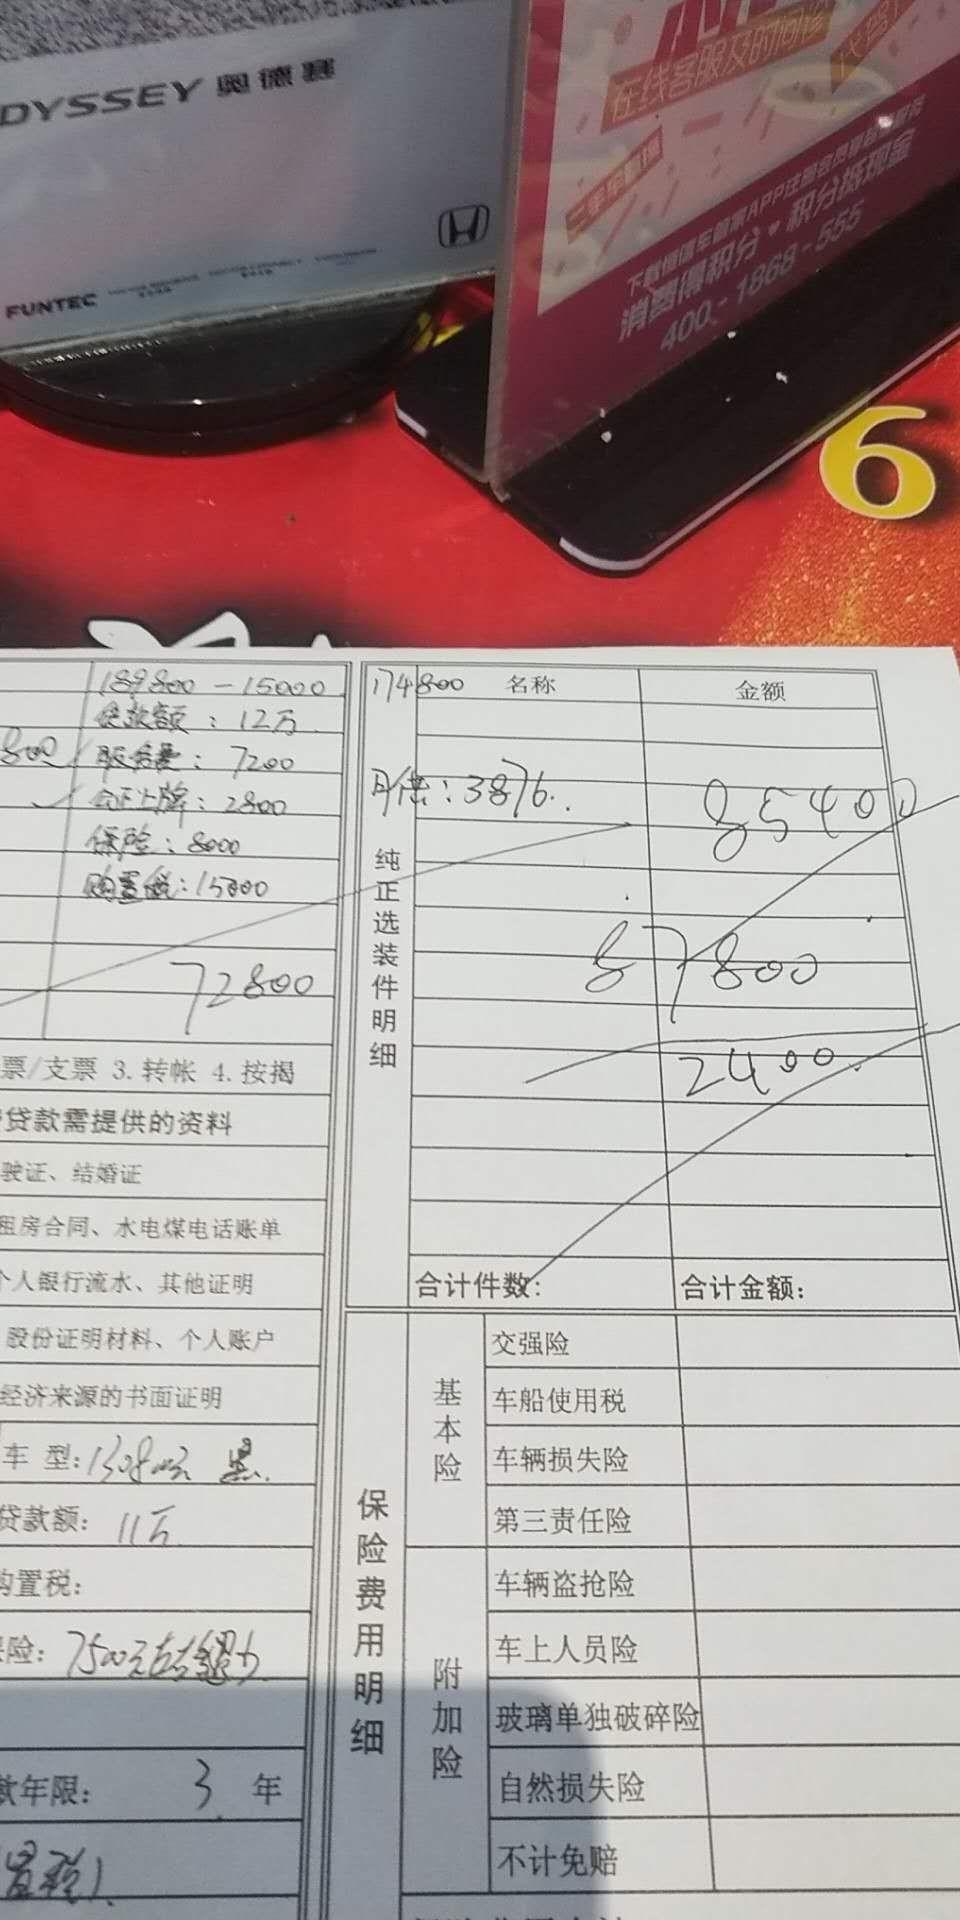 DYSSEY 奥德赛
FUNTEC
在线客服及时问诊
下载恒信车管家APP注册会员享超值服务
消费得积分·积分抵现金
400-1868-555
6
189800-15000
174800
名称
金额
贷款额：12万
800
服务费：7200
月供：3876
85400
上牌：2800
保险：8000
购置税：15000
纯正选装件明细
87800
72800
2400
票/支票 3.转帐 4.按揭
贷款需提供的资料
驶证、结婚证
租房合同、水电煤电话账单
个人银行流水、其他证明
合计件数：
合计金额：
股份证明材料、个人账户
经济来源的书面证明
车 型：
黑
贷款额：11万
购置税：
险：7500元
款年限：3 年
置税）
保险费用明细
基本险
交强险
车船使用税
车辆损失险
第三责任险
附加险
车辆盗抢险
车上人员险
玻璃单独破碎险
自然损失险
不计免赔